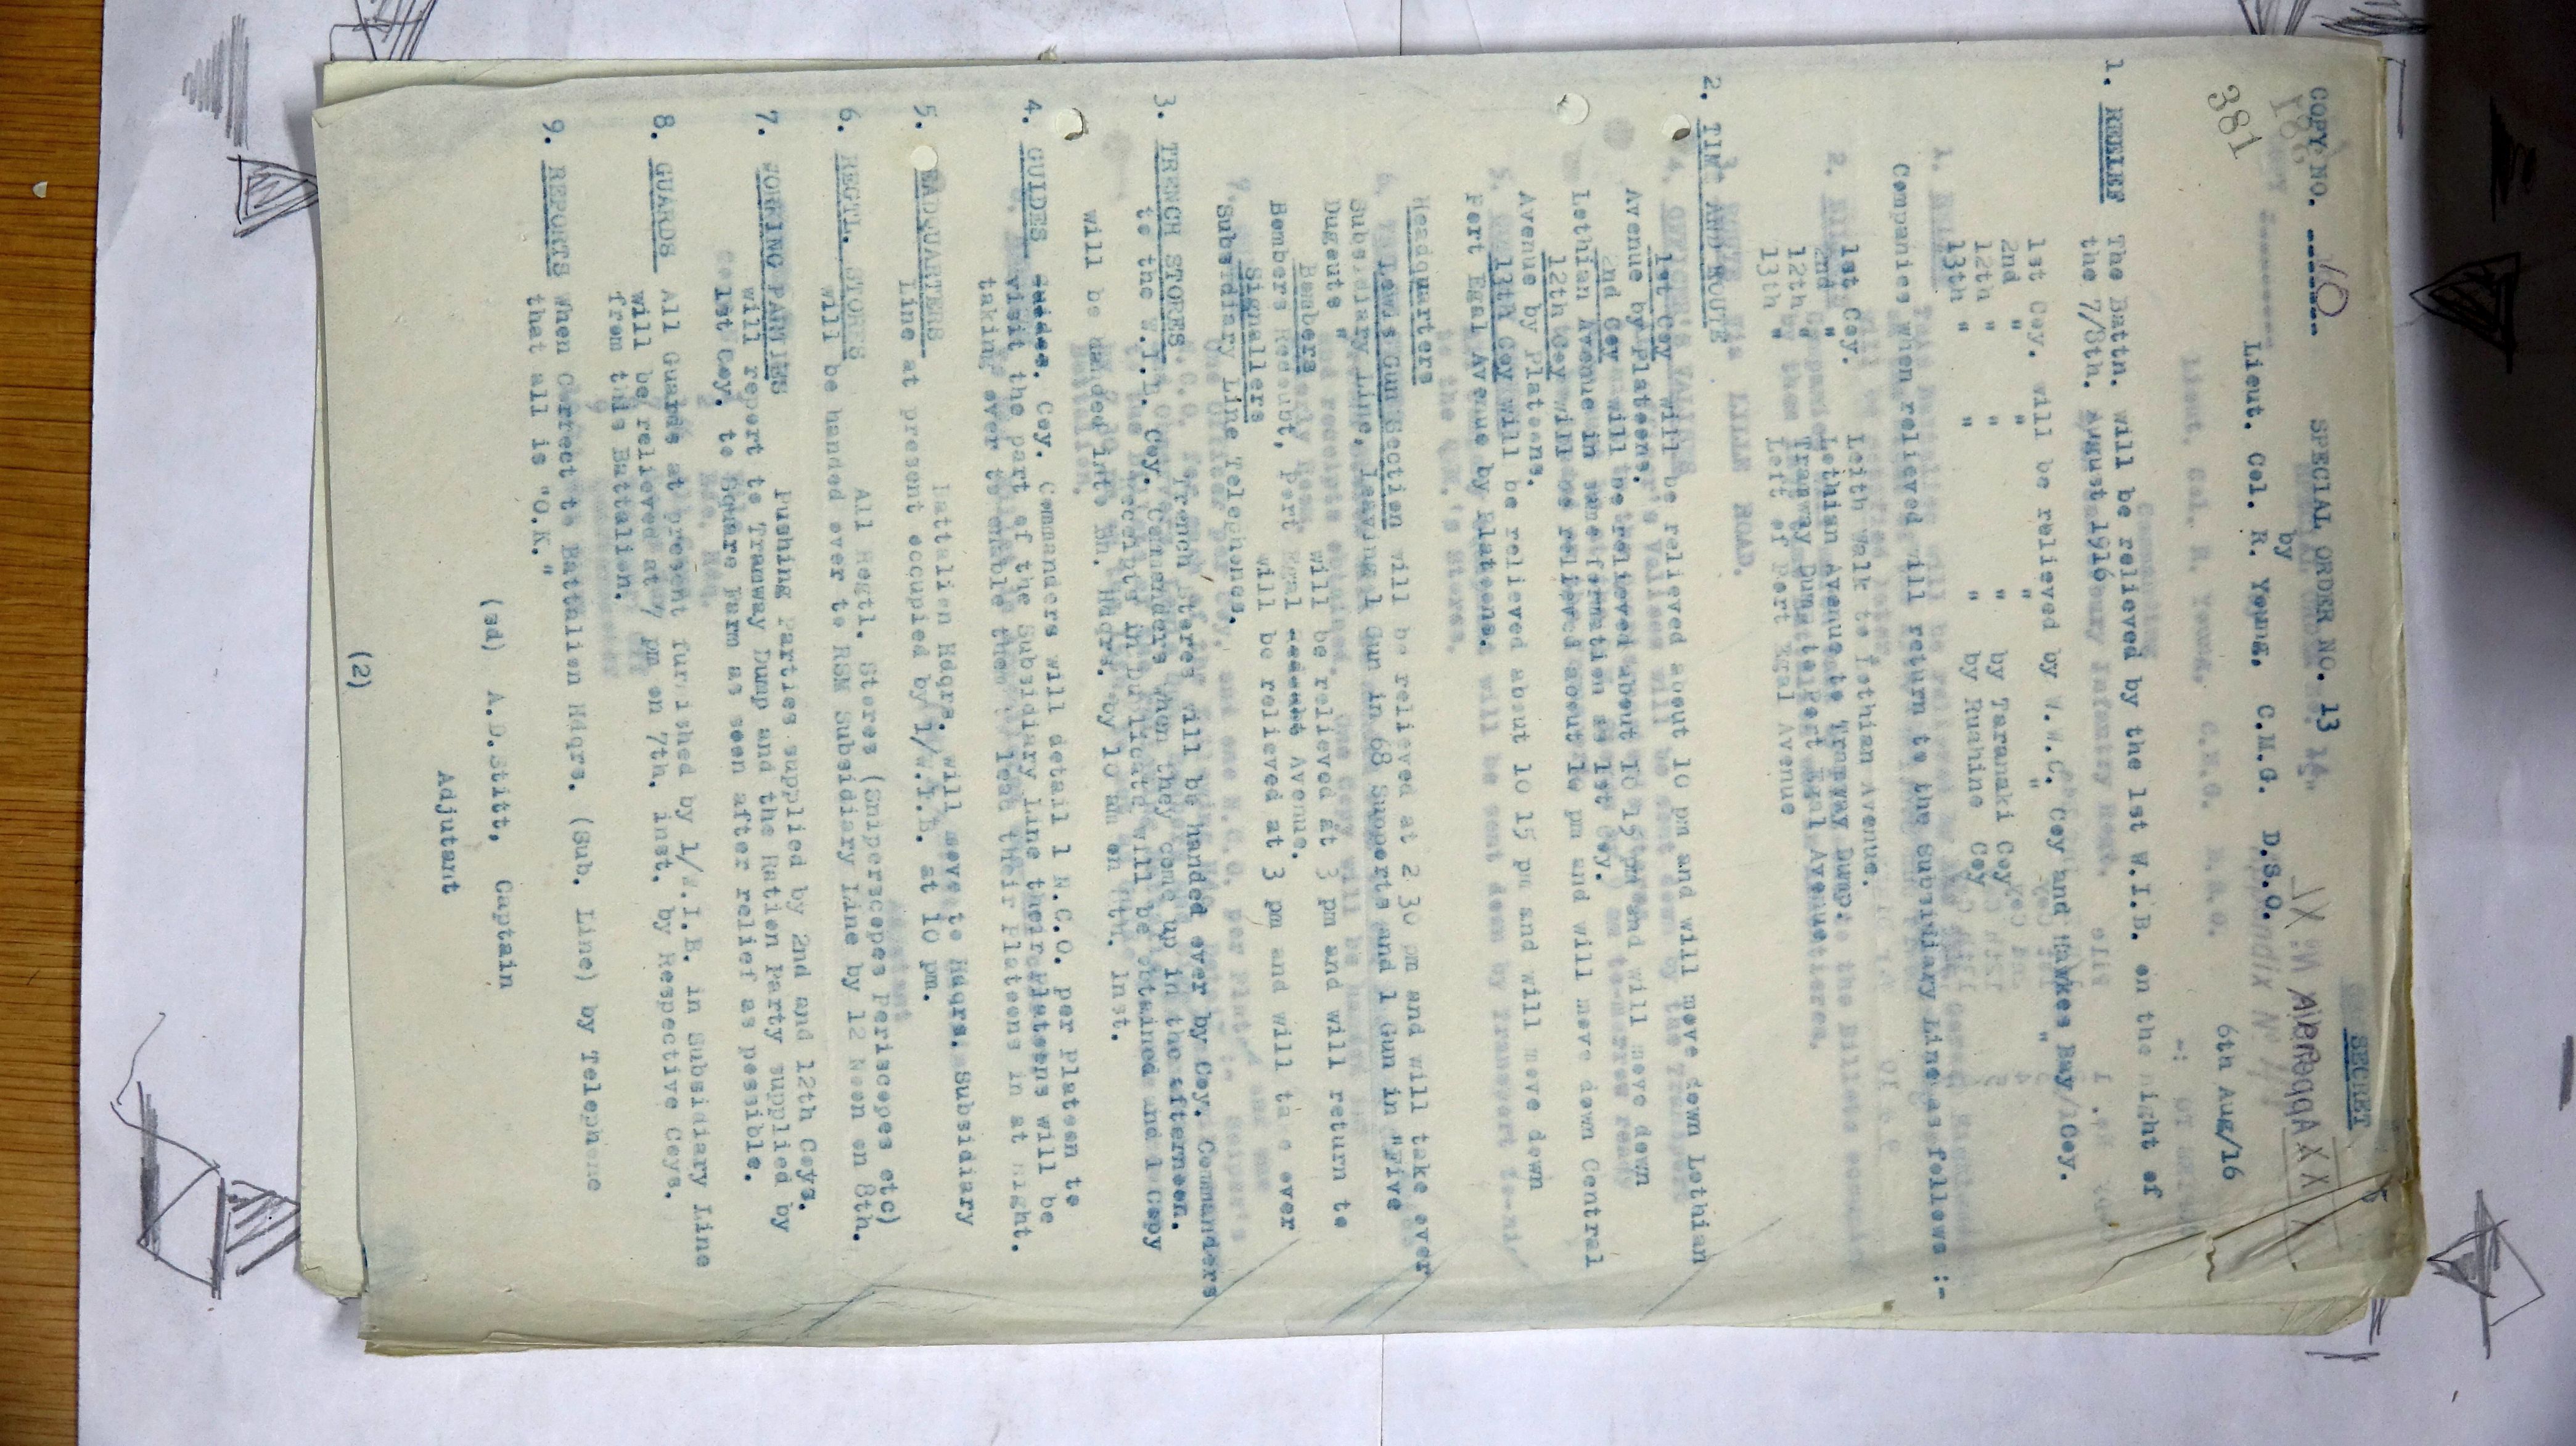 SECRET
COPY NO. 10 SPECIAL ORDER NO. 13
by
Lieut. Col. R. Young, C.M.G. D.S.O.
381
6th Aug/16
1. RELIEF The Battn. will be relieved by the 1st W.I.B. on the night of
the 7/8th. August 1916
1st Coy. will be relieved by W.W.C. Coy and Hawkes Bay/1Coy.
2nd " " "
12th " " " by Taranaki Coy
13th " " " by Ruahine Coy
Companies when relieved will return to the Subsidiary Line as follows :-
1st Coy. Leith Walk to Lothian Avenue.
2nd " Lothian Avenue to Tramway Dump.
12th " Tramway Dump to Port Egal Avenue
13th " Left of Port Egal Avenue
2. TIME AND ROUTE
1st Coy will be relieved about 10 pm and will move down Lothian
Avenue by Platoons.
2nd Coy will be relieved about 10 15 pm and will move down
Lothian Avenue in same formation as 1st Coy.
12th Coy will be relieved about 10 pm and will move down Central
Avenue by Platoons.
13th Coy will be relieved about 10 15 pm and will move down
Port Egal Avenue by Platoons.
Headquarters
Lewis Gun Section will be relieved at 2 30 pm and will take over
Subsidiary Line, leaving 1 Gun in 68 Supports and 1 Gun in "Five
Dugouts "
Bombers will be relieved at 3 pm and will return to
Bombers Redoubt, Port Egal Avenue.
Signallers will be relieved at 3 pm and will take over
Subsidiary Line Telephones.
3. TRENCH STORES Trench Stores will be handed over by Coy. Commanders
to the W.I.B. Coy. Commanders when they come up in the afternoon.
Receipts in Duplicate will be obtained and 1 Copy
will be handed into Bn. Hdqrs. by 10 am on 8th. inst.
4. GUIDES Coy. Commanders will detail 1 N.C.O. per platoon to
visit the part of the Subsidiary Line their platoons will be
taking over to enable them to lead their Platoons in at night.
5. HEADQUARTERS Battalion Hdqrs. will move to Hdqrs. Subsidiary
Line at present occupied by 1/W.I.B. at 10 pm.
6. REGTL. STORES All Regtl. Stores (Sniperscopes Periscopes etc)
will be handed over to RSM Subsidiary Line by 12 Noon on 8th.
7. WORKING PARTIES Pushing Parties supplied by 2nd and 12th Coys.
will report to Tramway Dump and the Ration Party supplied by
1st Coy. to Square Farm as soon after relief as possible.
8. GUARDS All Guards at present furnished by 1/W.I.B. in Subsidiary Line
will be relieved at 7 pm on 7th. inst. by Respective Coys.
from this Battalion.
9. REPORTS When Correct to Battalion Hdqrs. (Sub. Line) by Telephone
that all is "O.K."
(sd) A.D.Stitt, Captain
Adjutant
(2)